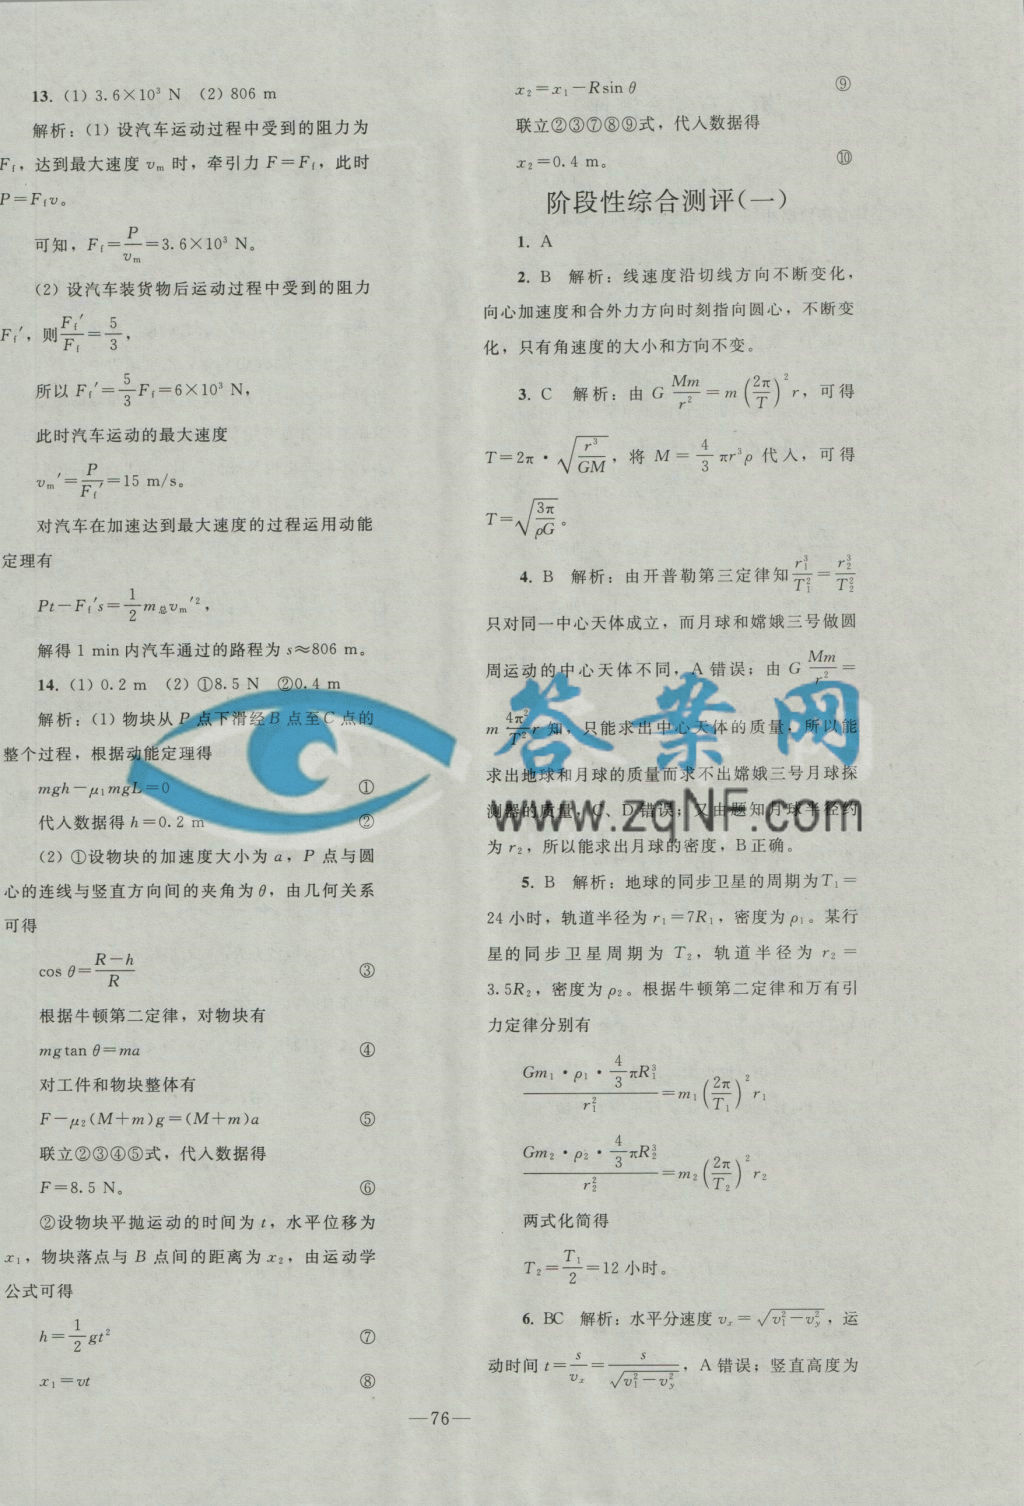 13. (1) 3.6×10³ N (2) 806 m
解析：(1) 设汽车运动过程中受到的阻力为
F_f，达到最大速度 v_m 时，牵引力 F=F_f，此时
P=F_f v。
可知，F_f=P/v_m=3.6×10³ N。
(2) 设汽车装货物后运动过程中受到的阻力
F_f′，则F_f′/F_f=5/3，
所以 F_f′=5/3F_f=6×10³ N，
此时汽车运动的最大速度
v_m′=P/F_f′=15 m/s。
对汽车在加速达到最大速度的过程运用动能
定理有
Pt−F_f′s=1/2m总v_m′²，
解得 1 min 内汽车通过的路程为 s≈806 m。
14. (1) 0.2 m (2) ①8.5 N ②0.4 m
解析：(1) 物块从 P 点下滑经 B 点至 C 点的
整个过程，根据动能定理得
mgh−μ₁mgL=0 ①
代入数据得 h=0.2 m ②
(2) ①设物块的加速度大小为 a，P 点与圆
心的连线与竖直方向间的夹角为 θ，由几何关系
可得
cos θ=(R−h)/R ③
根据牛顿第二定律，对物块有
mgtan θ=ma ④
对工件和物块整体有
F−μ₂(M+m)g=(M+m)a ⑤
联立②③④⑤式，代入数据得
F=8.5 N。 ⑥
②设物块平抛运动的时间为 t，水平位移为
x₁，物块落点与 B 点间的距离为 x₂，由运动学
公式可得
h=1/2gt² ⑦
x₁=vt ⑧
x₂=x₁−Rsin θ ⑨
联立②③⑦⑧⑨式，代入数据得
x₂=0.4 m。 ⑩
阶段性综合测评(一)
1. A
2. B 解析：线速度沿切线方向不断变化，
向心加速度和合外力方向时刻指向圆心，不断变
化，只有角速度的大小和方向不变。
3. C 解析：由 G Mm/r²=m(2π/T)²r，可得
T=2π·√(r³/GM)，将 M=4/3πr³ρ 代入，可得
T=√(3π/ρG)。
4. B 解析：由开普勒第三定律知r₁³/T₁²=r₂³/T₂²
只对同一中心天体成立，而月球和嫦娥三号做圆
周运动的中心天体不同，A 错误；由 G Mm/r²=
m 4π²/T² r 知，只能求出中心天体的质量，所以能
求出地球和月球的质量而求不出嫦娥三号月球探
测器的质量，C、D 错误；又由题知月球半径约
为 r₂，所以能求出月球的密度，B 正确。
5. B 解析：地球的同步卫星的周期为T₁=
24 小时，轨道半径为 r₁=7R₁，密度为 ρ₁。某行
星的同步卫星周期为 T₂，轨道半径为 r₂=
3.5R₂，密度为 ρ₂。根据牛顿第二定律和万有引
力定律分别有
(Gm₁·ρ₁·4/3πR₁³)/r₁²=m₁(2π/T₁)²r₁
(Gm₂·ρ₂·4/3πR₂³)/r₂²=m₂(2π/T₂)²r₂
两式化简得
T₂=T₁/2=12 小时。
6. BC 解析：水平分速度 v_x=√(v₁²−v_y²)，运
动时间 t=s/v_x=s/√(v₁²−v_y²)，A 错误；竖直高度为
—76—
答案网
www.zqNF.com